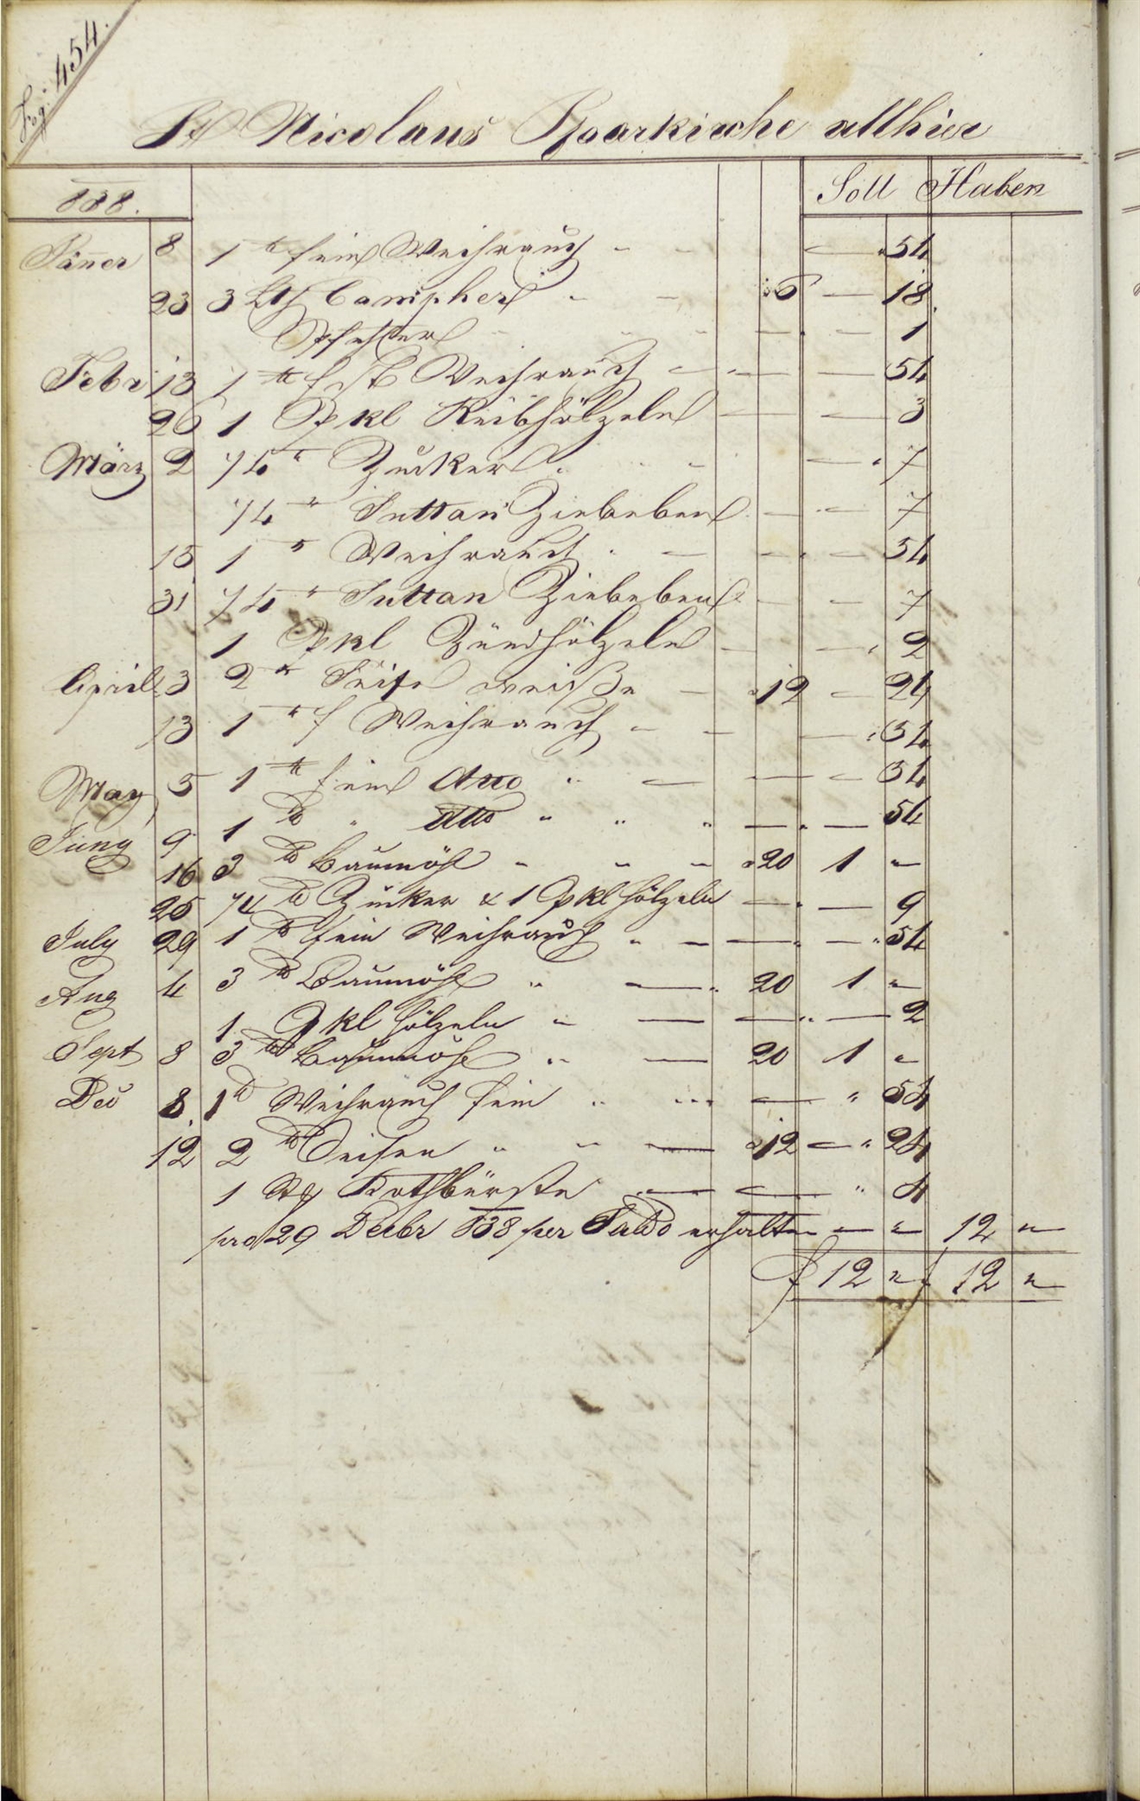 Fog: 454.
St Nicolaus Pfarrkirche allhier
838. Soll Haben
Jäner 8 1 ℔ fein Weihrauch " — " 54
23 3 Lth Campher " — 6 — 18
— " — 1
Febr 13 1 ℔ Weihrauch — " — — 54
26 1 Pkl Reibhölzeln — — 3
März 2 1/4 ℔ Zucker " " — " 7
1/4 ℔ Sultan Ziebeben — " — 7
15 1 ℔ Weihrauch " — — " — 54
31 1/4 ℔ Sultan Ziebeben — — 7
1 Pkl Zündhölzeln — — " 2
April 3 2 ℔ Seife weiße — " 12 — 24
13 1 ℔ f Weihrauch — — — " 54
May 5 1 ℔ fein dtto " — — — 54
Juny 9 1 ℔ " dtto " " " — " — 54
16 3 ℔ Baumöhl " " " " 20 1 "
25 1/4 ℔ Zucker & 1 Pkl hölzeln — " — 9
July 29 1 ℔ fein Weihrauch " — — " — " 54
Aug 4 3 ℔ Baumöhl " — " 20 1 "
1 Pkl hölzeln " — — " — 2
Sept 8 3 ℔ Baumöhl " — 20 1 "
Dec 8. 1 ℔ Weihrauch fein " " — " 54
12 2 ℔ Seifen " " — " 12 — " 24
1 Kothbürste " — — " 4
pro 29 Decbr 838 per Saldo erhalten — " 12 "
f 12 " f 12 "